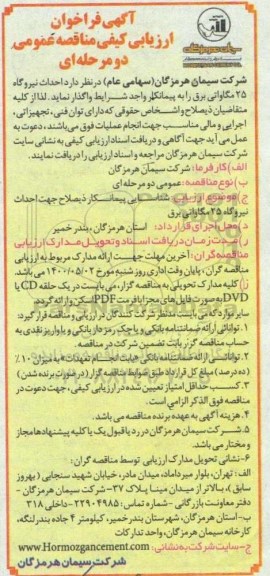 آگهی فراخوان
ارزیابی کیفی مناقصه عمومی
دو مرحله ای
شرکت سیمان هرمزگان (سهامی عام) در نظر دارد احداث نیروگاه
۲۵ مگاواتی برق را به پیمانکار واجد شرایط واگذار نماید. لذا از کلیه
متقاضیان ذیصلاح واشخاص حقوقی که دارای توان فنی، تجهیزاتی،
اجرایی و مالی مناسب جهت انجام عملیات فوق می باشند، دعوت به
عمل می آید جهت آگاهی و دریافت اسناد ارزیابی کیفی به نشانی سایت
شرکت سیمان هرمزگان مراجعه و اسناد ارزیابی را دریافت نمایند.
الف) کارفرما: شرکت سیمان هرمزگان
ب) نوع مناقصه: عمومی دو مرحله ای
ج) موضوع ارزیابی: شناسایی پیمانکار ذیصلاح جهت احداث
نیروگاه ۲۵ مگاواتی برق
د) محل اجرای قرارداد: استان هرمزگان، بندر خمیر
ه) مدت زمان دریافت اسناد و تحویل مدارک ارزیابی
مناقصه گران: آخرین مهلت جهت ارائه مدارک مربوط به ارزیابی
مناقصه گران، پایان وقت اداری روز شنبه مورخ ۱۴۰۰/۰۵/۰۲ می باشد.
کلیه مدارک تحویلی به مناقصه گزار، می بایست در یک حلقه CD یا
DVD به صورت فایل های مجزا با فرمت PDF اسکن و ارائه گردد.
سایر مواردکه می بایست مدنظر شرکت کنندگان در ارزیابی و مناقصه قرار گیرد:
۱. توانائی ارائه ضمانتنامه بانکی و یا چک رمزدار بانکی و یا واریز نقدی به
حساب مناقصه گزار بابت تضمین شرکت در مناقصه.
۲. توانائی ارائه ضمانتنامه بانکی بابت انجام تعهدات به میزان ۱۰٪
(ده درصد) مبلغ کل قرارداد طبق ضوابط مناقصه گزار (در صورت برنده شدن)
۳. کسب حداقل امتیاز تعیین شده در ارزیابی کیفی، جهت دعوت در
مناقصه فوق الذکر الزامی است.
۴. هزینه آگهی به عهده برنده مناقصه می باشد.
۵. شرکت سیمان هرمزگان در رد یا قبول یک یا کلیه پیشنهادها مجاز
و مختار می باشد.
۶- نشانی تحویل مدارک ارزیابی توسط مناقصه گران:
الف: تهران، بلوار میرداماد، میدان مادر، خیابان شهید سنجابی (بهروز
سابق)، بالاتر از میدان مینا پلاک ۳۷ - شرکت سیمان هرمزگان -
دفتر معاونت بازرگانی - شماره تماس: ۲۲۹۰۴۹۸۵ - داخلی ۳۱۸
ب- استان هرمزگان، شهرستان بندر خمیر، کیلومتر ۴ جاده بندرلنگه،
کارخانه سیمان هرمزگان، واحد تدارکات
ج- سایت شرکت به نشانی: www.Hormozgancement.com
شرکت سیمان هرمزگان